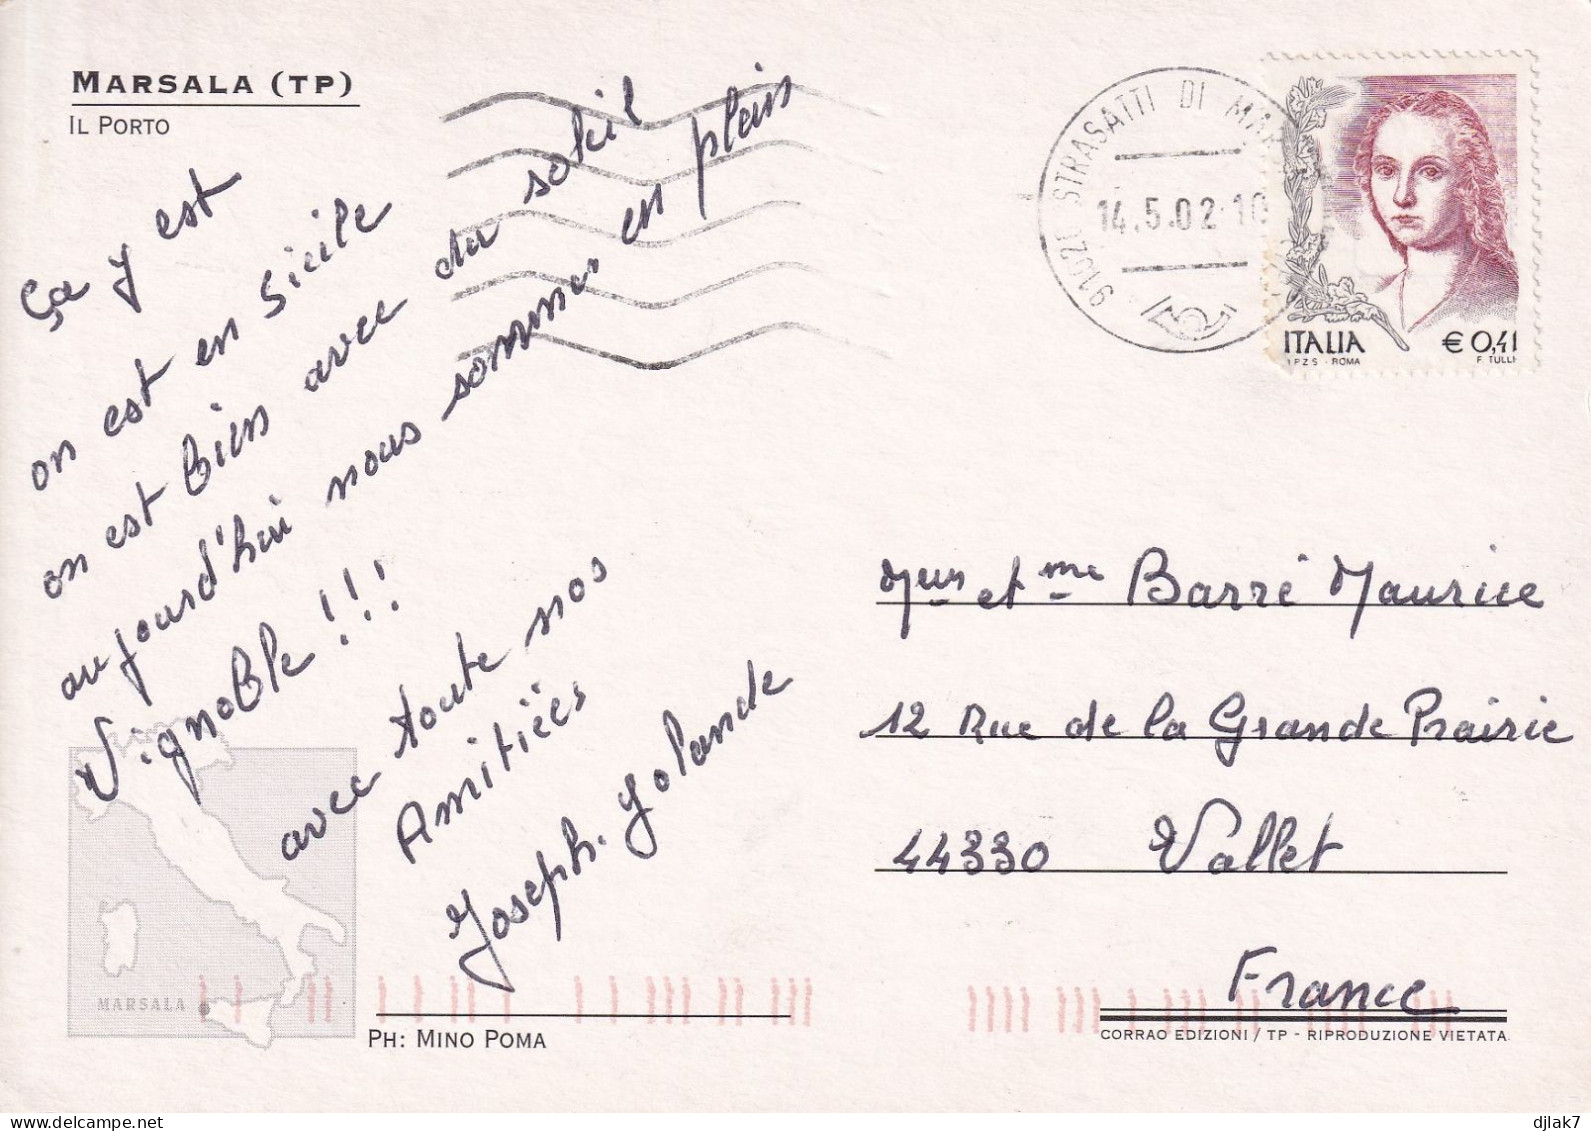 MARSALA (TP)
IL PORTO
Ça y est
on est en Sicile
on est bien avec du soleil
aujourd'hui nous sommes en plein
Vignoble !!!
avec toute nos
Amitiées
Joseph. Yolande
91021 STRASATTI DI MAR
14.5.02.10
ITALIA
€ 0,41
I.P.Z.S. - ROMA
F. TULLI
Mr et Mme Barré Maurice
12 Rue de la Grande Prairie
44330 Vallet
France
MARSALA
PH: MINO POMA
CORRAO EDIZIONI / TP - RIPRODUZIONE VIETATA
djlak7